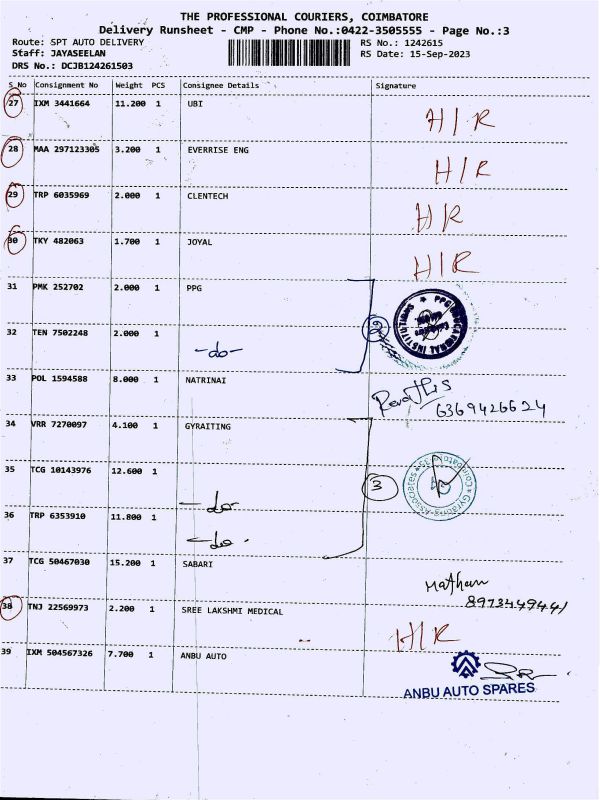 THE PROFESSIONAL COURIERS, COIMBATORE
Delivery Runsheet - CMP - Phone No.:0422-3505555 - Page No.:3
Route: SPT AUTO DELIVERY RS No.: 1242615
Staff: JAYASEELAN RS Date: 15-Sep-2023
DRS No.: DCJB124261503
S_No Consignment No Weight PCS Consignee Details Signature
27 IXM 3441664 11.200 1 UBI H/R
28 MAA 297123305 3.200 1 EVERRISE ENG H/R
29 TRP 6035969 2.000 1 CLENTECH H/R
30 TKY 482063 1.700 1 JOYAL H/R
31 PMK 252702 2.000 1 PPG
2
32 TEN 7502248 2.000 1
-do-
33 POL 1594588 8.000 1 NATRINAI Revathi S
6369426624
34 VRR 7270097 4.100 1 GYRAITING
35 TCG 10143976 12.600 1 3
-do-
36 TRP 6353910 11.800 1
-do-
37 TCG 50467030 15.200 1 SABARI
8973449441
38 TNJ 22569973 2.200 1 SREE LAKSHMI MEDICAL H/R
39 IXM 504567326 7.700 1 ANBU AUTO
ANBU AUTO SPARES